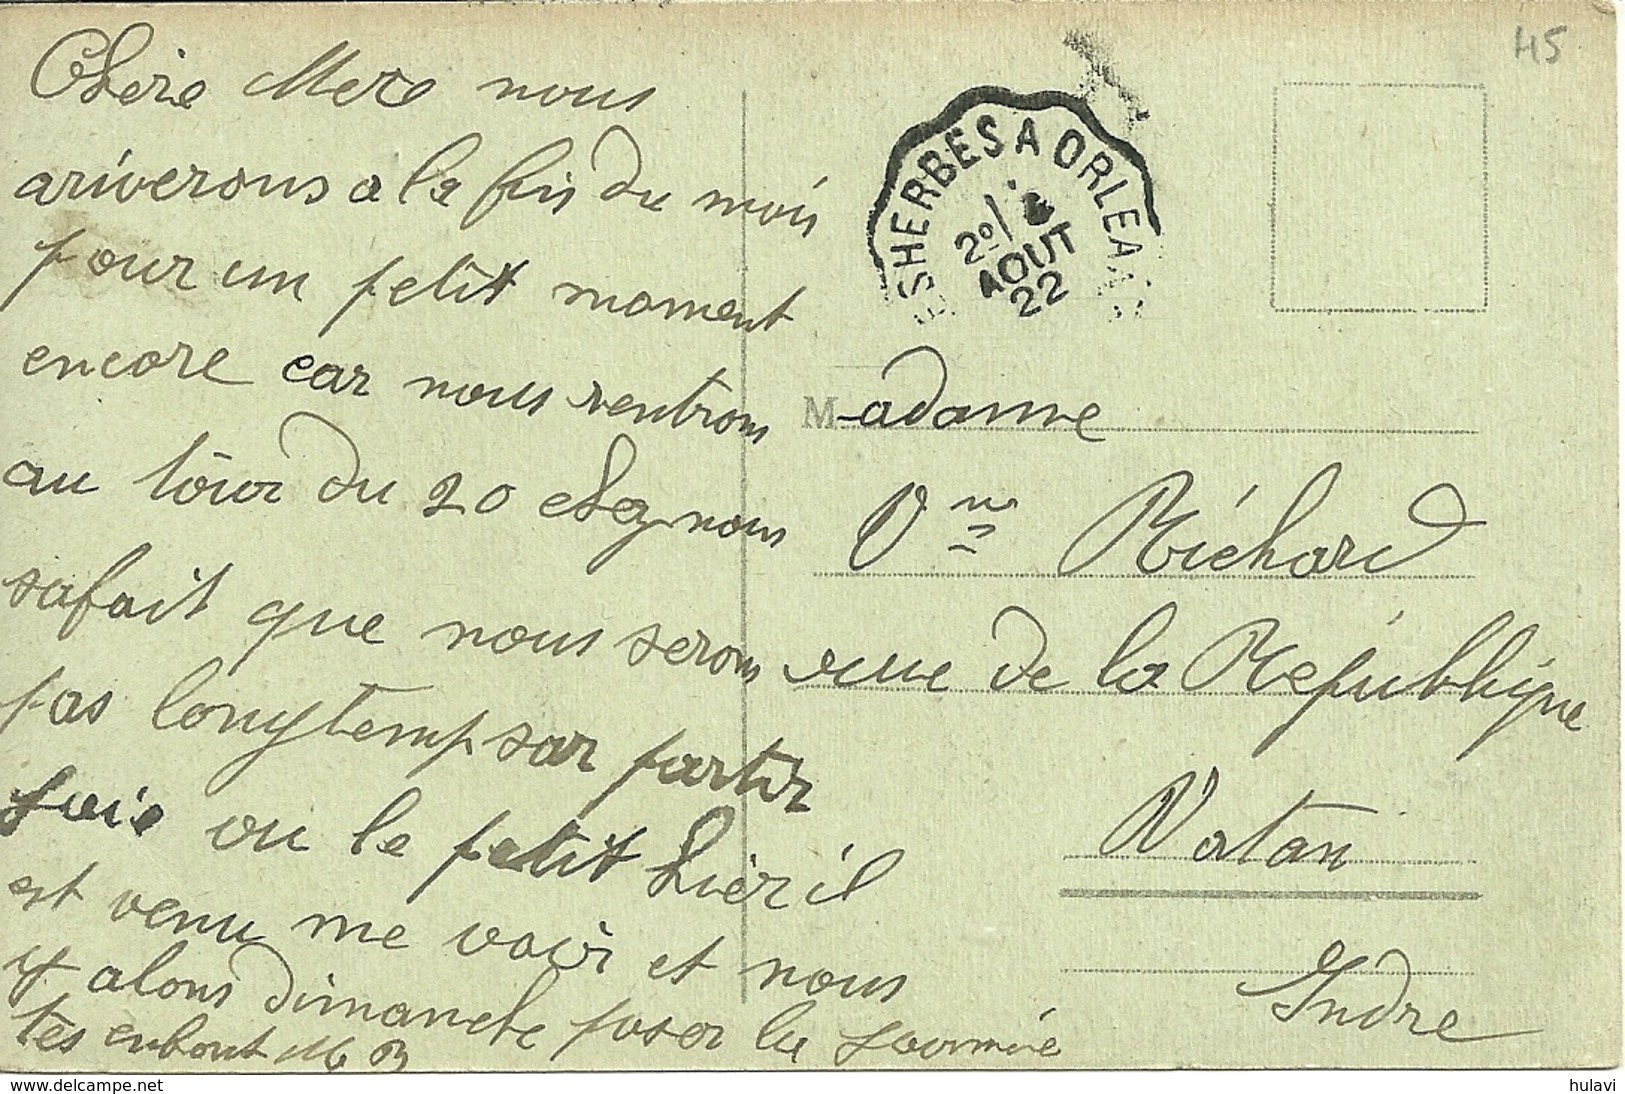 45
Chère Mere nous
ariverons a la fin du mois
pour un petit moment
encore car nous rentrons
au tour du 20 chez nous
safait que nous serons
pas longtemp sar partir
jaie vu le petit hier il
est venu me voir et nous
y alons dimanche paser la journée
tes enfant M B
ESHERBES A ORLEANS
2º/ 
AOUT
22
Madame
Vve Richard
rue de la République
Vatan
Indre
hulavi